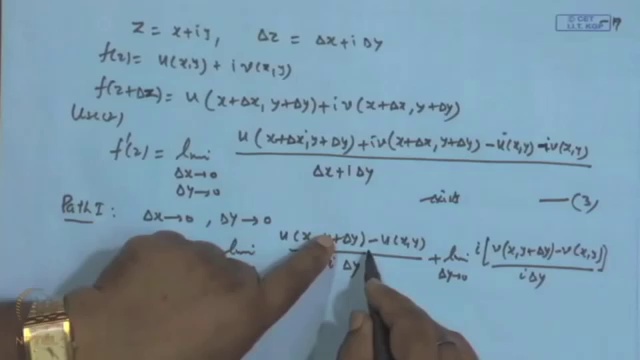 Z = x+iy, Δz = Δx+iΔy
© CET
I.I.T. KGP
f(z) = u(x,y) + i v(x,y)
f(z+Δz) = u(x+Δx, y+Δy) + i v(x+Δx, y+Δy)
f'(z) = lim Δx→0 Δy→0 u(x+Δx, y+Δy) + iv(x+Δx, y+Δy) - u(x,y) - iv(x,y) / Δx+iΔy
exists —(3)
Path I: Δx→0, Δy→0
lim u(x, y+Δy) - u(x,y) / iΔy + lim Δy→0 i[v(x,y+Δy) - v(x,y)] / iΔy